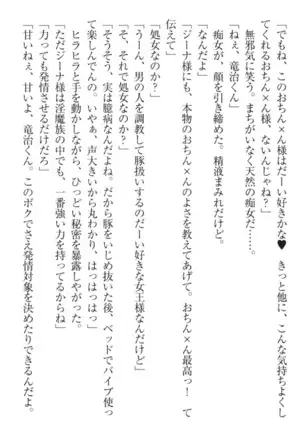 「でもね、このおちん×ん様はだーい好きかな♥　きっと、こんな気持ちよくし
てくれるおちん×ん様、ないんじゃね？」
無邪気に笑う。まちがいなく天然の痴女だ……。
「ねぇ、竜治くん」
痴女が、顔を引き締めた。精液まみれだけど。
「なんだよ」
「ジーナ様にも、本物のおちん×んのよさを教えてあげて。おちん×ん最高っ！　て
伝えて」
「処女なのか？」
「うーん、男の人を調教して豚扱いするのだーい好きな女王様なんだけど」
「そ、それで処女なのか？」
「そうそう、実は臆病なんだよね。だから豚をいじめ抜いた後、ベッドでバイブ使っ
て楽しんでんの。いやぁ、声大きいから丸わかり、はっはっはっ」
ヒラヒラと手を動かしながら、ひっどい秘密を暴露しやがった。
「ただジーナ様は淫魔族の中でも、一番強い力を持ってるからね」
「力っても発情させるだけだろ」
「甘いねぇ、甘いよ、竜治くん。このボクでさえ発情対象を決めたりできるんだよ。